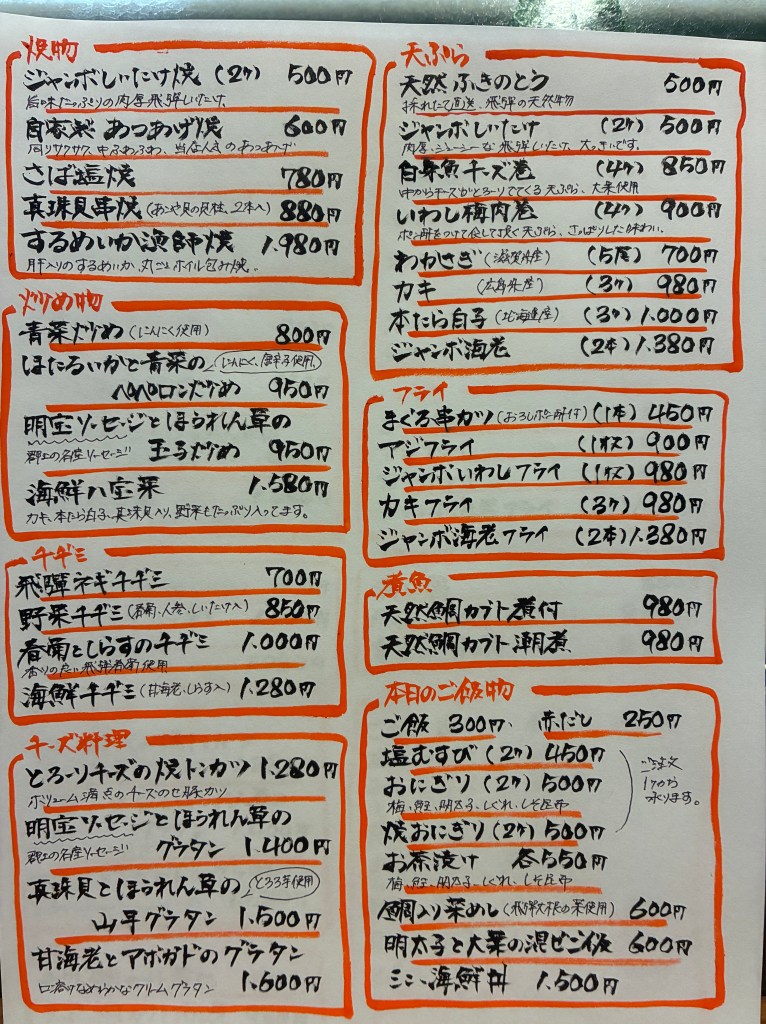 焼物
ジャンボしいたけ焼 (2ケ) 500円
旨味たっぷりの肉厚飛騨しいたけ
自家製 あつあげ焼 600円
周りサクサク、中ふわふわ、当店人気のあつあげ
さば塩焼 780円
真珠貝串焼 (あこや貝の貝柱、2本入) 880円
するめいか漁師焼 1.980円
肝入りのするめいか、丸ごとホイル包み焼。
炒め物
青菜炒め (にんにく使用) 800円
ほたるいかと青菜の (にんにく、唐辛子使用)
ペペロン炒め 950円
明宝ソーセージとほうれん草の
郡上の名産ソーセージ!! 玉子炒め 950円
海鮮八宝菜 1.580円
カキ、本たら白子、真珠貝入り、野菜もたっぷり入ってます。
チヂミ
飛騨ネギチヂミ 700円
野菜チヂミ (春菊、人参、しいたけ入) 850円
春菊としらすのチヂミ 1.000円
香りの良い飛騨春菊使用
海鮮チヂミ (甘海老、しらす入) 1.280円
チーズ料理
とろーりチーズの焼トンカツ 1.280円
ボリューム満点のチーズのせ豚カツ
明宝ソーセージとほうれん草の
郡上の名産ソーセージ!! グラタン 1.400円
真珠貝とほうれん草の (とろろ芋使用)
山芋グラタン 1.500円
甘海老とアボガドのグラタン
口溶けなめらかなクリームグラタン 1.600円
天ぷら
天然ふきのとう 500円
採れたて直送、飛騨の天然物
ジャンボしいたけ (2ケ) 500円
肉厚、ジューシーな飛騨しいたけ、大っきいです。
白身魚チーズ巻 (4ケ) 850円
中からチーズがとろーりでてくる天ぷら、大葉使用
いわし梅肉巻 (4ケ) 900円
ポン酢をつけて食して頂く天ぷら、さっぱりした味わい。
わかさぎ (滋賀県産) (5尾) 700円
カキ (広島県産) (3ケ) 980円
本たら白子 (北海道産) (3ケ) 1.000円
ジャンボ海老 (2本) 1.380円
フライ
まぐろ串カツ (おろしポン酢付) (1本) 450円
アジフライ (1枚) 900円
ジャンボいわしフライ (1枚) 980円
カキフライ (3ケ) 980円
ジャンボ海老フライ (2本) 1.380円
煮魚
天然鯛カブト煮付 980円
天然鯛カブト潮煮 980円
本日のご飯物
ご飯 300円、 赤だし 250円
塩むすび (2ケ) 450円
おにぎり (2ケ) 500円
梅、鮭、明太子、しぐれ、しそ昆布
焼おにぎり (2ケ) 500円
ご注文
1ケから
承ります。
お茶漬け 各550円
梅、鮭、明太子、しぐれ、しそ昆布
鯛入り菜めし (飛騨大根の葉使用) 600円
明太子と大葉の混ぜご飯 600円
ミニ海鮮丼 1.500円